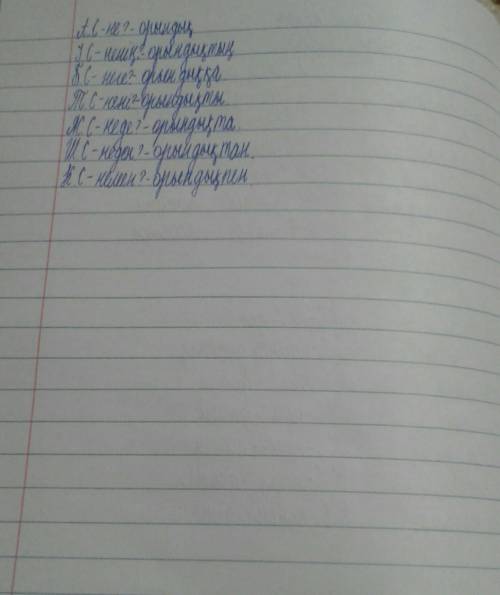 А.С-не?-орындық
І.С-ненің?-орындықтың
Б.С-неге?-орындыққа
Т.С-нені?-орындықты
Ж.С-неде?-орындықта.
Ш.С-неден?-орындықтан.
К.С-немен?-орындықпен